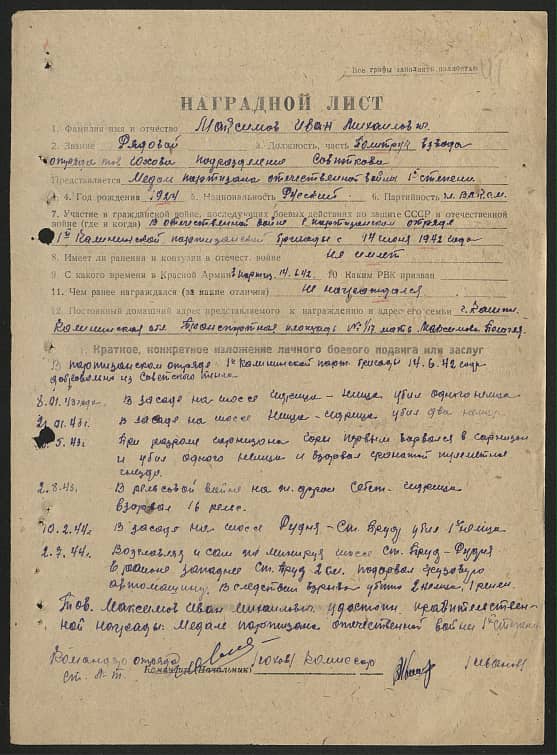 Все графы заполнять полностью
НАГРАДНОЙ ЛИСТ
1. Фамилия имя и отчество Максимов Иван Михайлович.
2. Звание Рядовой 3. Должность, часть Политрук взвода
отряда тов Юхова подразделение
Представляется Медали партизана отечественной войны 1й степени
4. Год рождения 1924 5. Национальность Русский 6. Партийность
7. Участие в гражданской войне, последующих боевых действиях по защите СССР и отечественной
войне (где и когда) В отечественной войне в партизанском отряде
1й Калининской партизанской бригады с 14 июня 1942 года
8. Имеет ли ранения и контузии в отечест. войне Не имеет
9. С какого времени в Красной Армии в партиз. 14.6.42 10 Каким РВК призван
11. Чем ранее награждался (за какие отличия) Не награждался
12. Постоянный домашний адрес представляемого к награждению и адрес его семьи
Калининская обл Транспортная площадь № мать Максимова
1. Краткое, конкретное изложение личного боевого подвига или заслуг
В партизанском отряде 1й Калининской парт. бригады 14.6.42 года
добровольно из советского тыла
8.01.43 года. В засаде на шоссе Сидрица - Нища убил одного немца
01.43г. В засаде на шоссе Нища - Сидрица убил два немца
5.43г. При разгроме гарнизона первым ворвался в гарнизон
и убил одного немца и взорвал гранатой пулеметное
гнездо.
2.8.43. В рельсовой войне на ж. дороге - Сидрица
взорвал 16 рельс.
10.2.44г. В засаде на шоссе Рудня - Ст. Вруд убил 1 немца
2.7.44г. Возглавлял и сам по минируя шоссе ст. Вруд - Рудня
в районе западнее ст. Вруд 2 км. подорвал грузовую
автомашину. Вследствии взрыва убито 2 немца, 1 ранен.
Тов. Максимов Иван Михайлович удостоен правительствен-
ной награды: Медале партизана отечественной войны 1й степени
Командир отряда
ст. л-т. Командир (Начальник) (Юхов) Комиссар (Иванов)